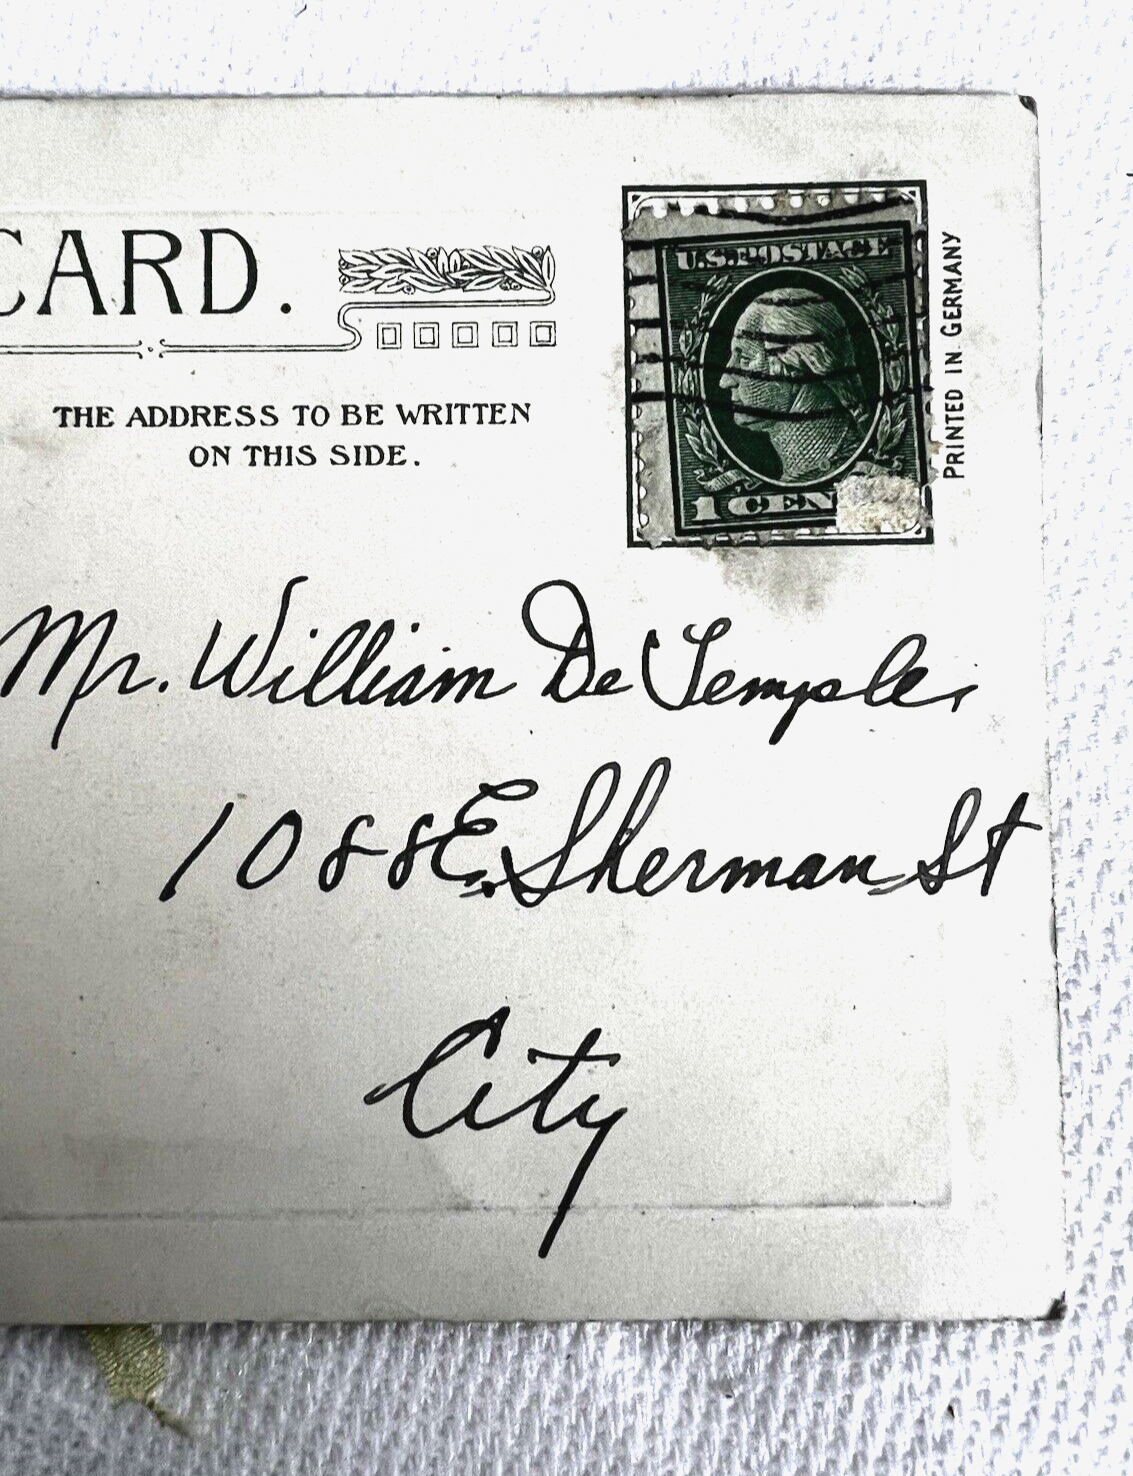 CARD.
THE ADDRESS TO BE WRITTEN
ON THIS SIDE.
U.S. POSTAGE
1 CEN
PRINTED IN GERMANY
Mr. William De Temple,
1088 E. Sherman St
City